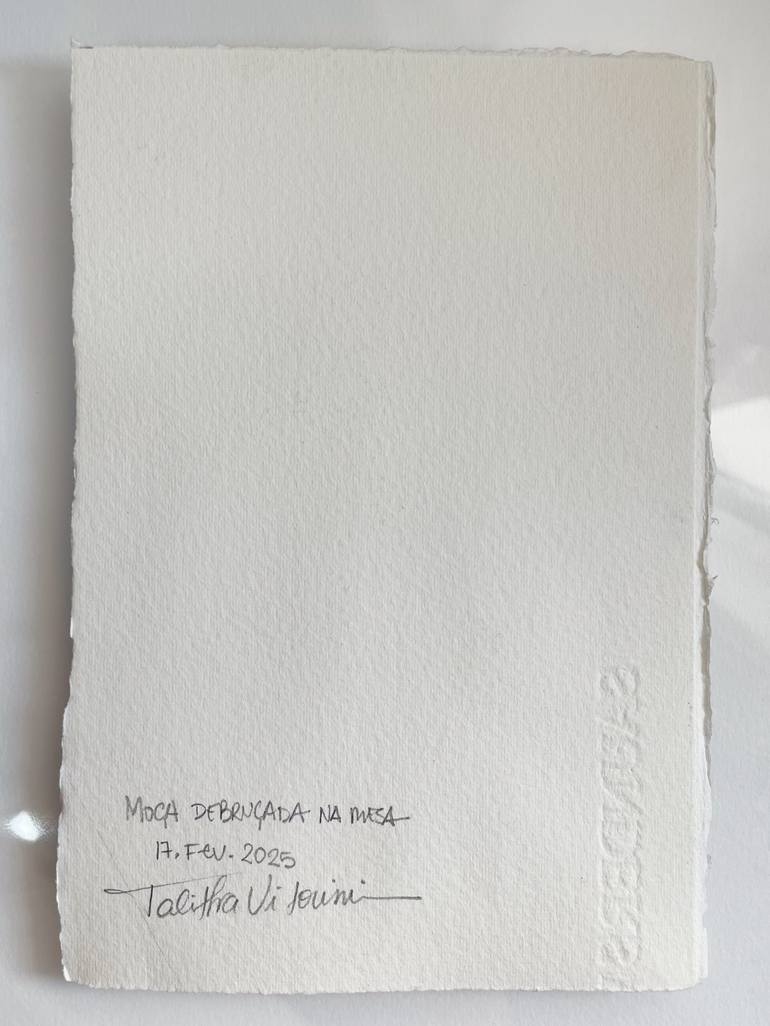 MOÇA DEBRUÇADA NA MESA
17. FEV. 2025
Talitha
SAUNDERS